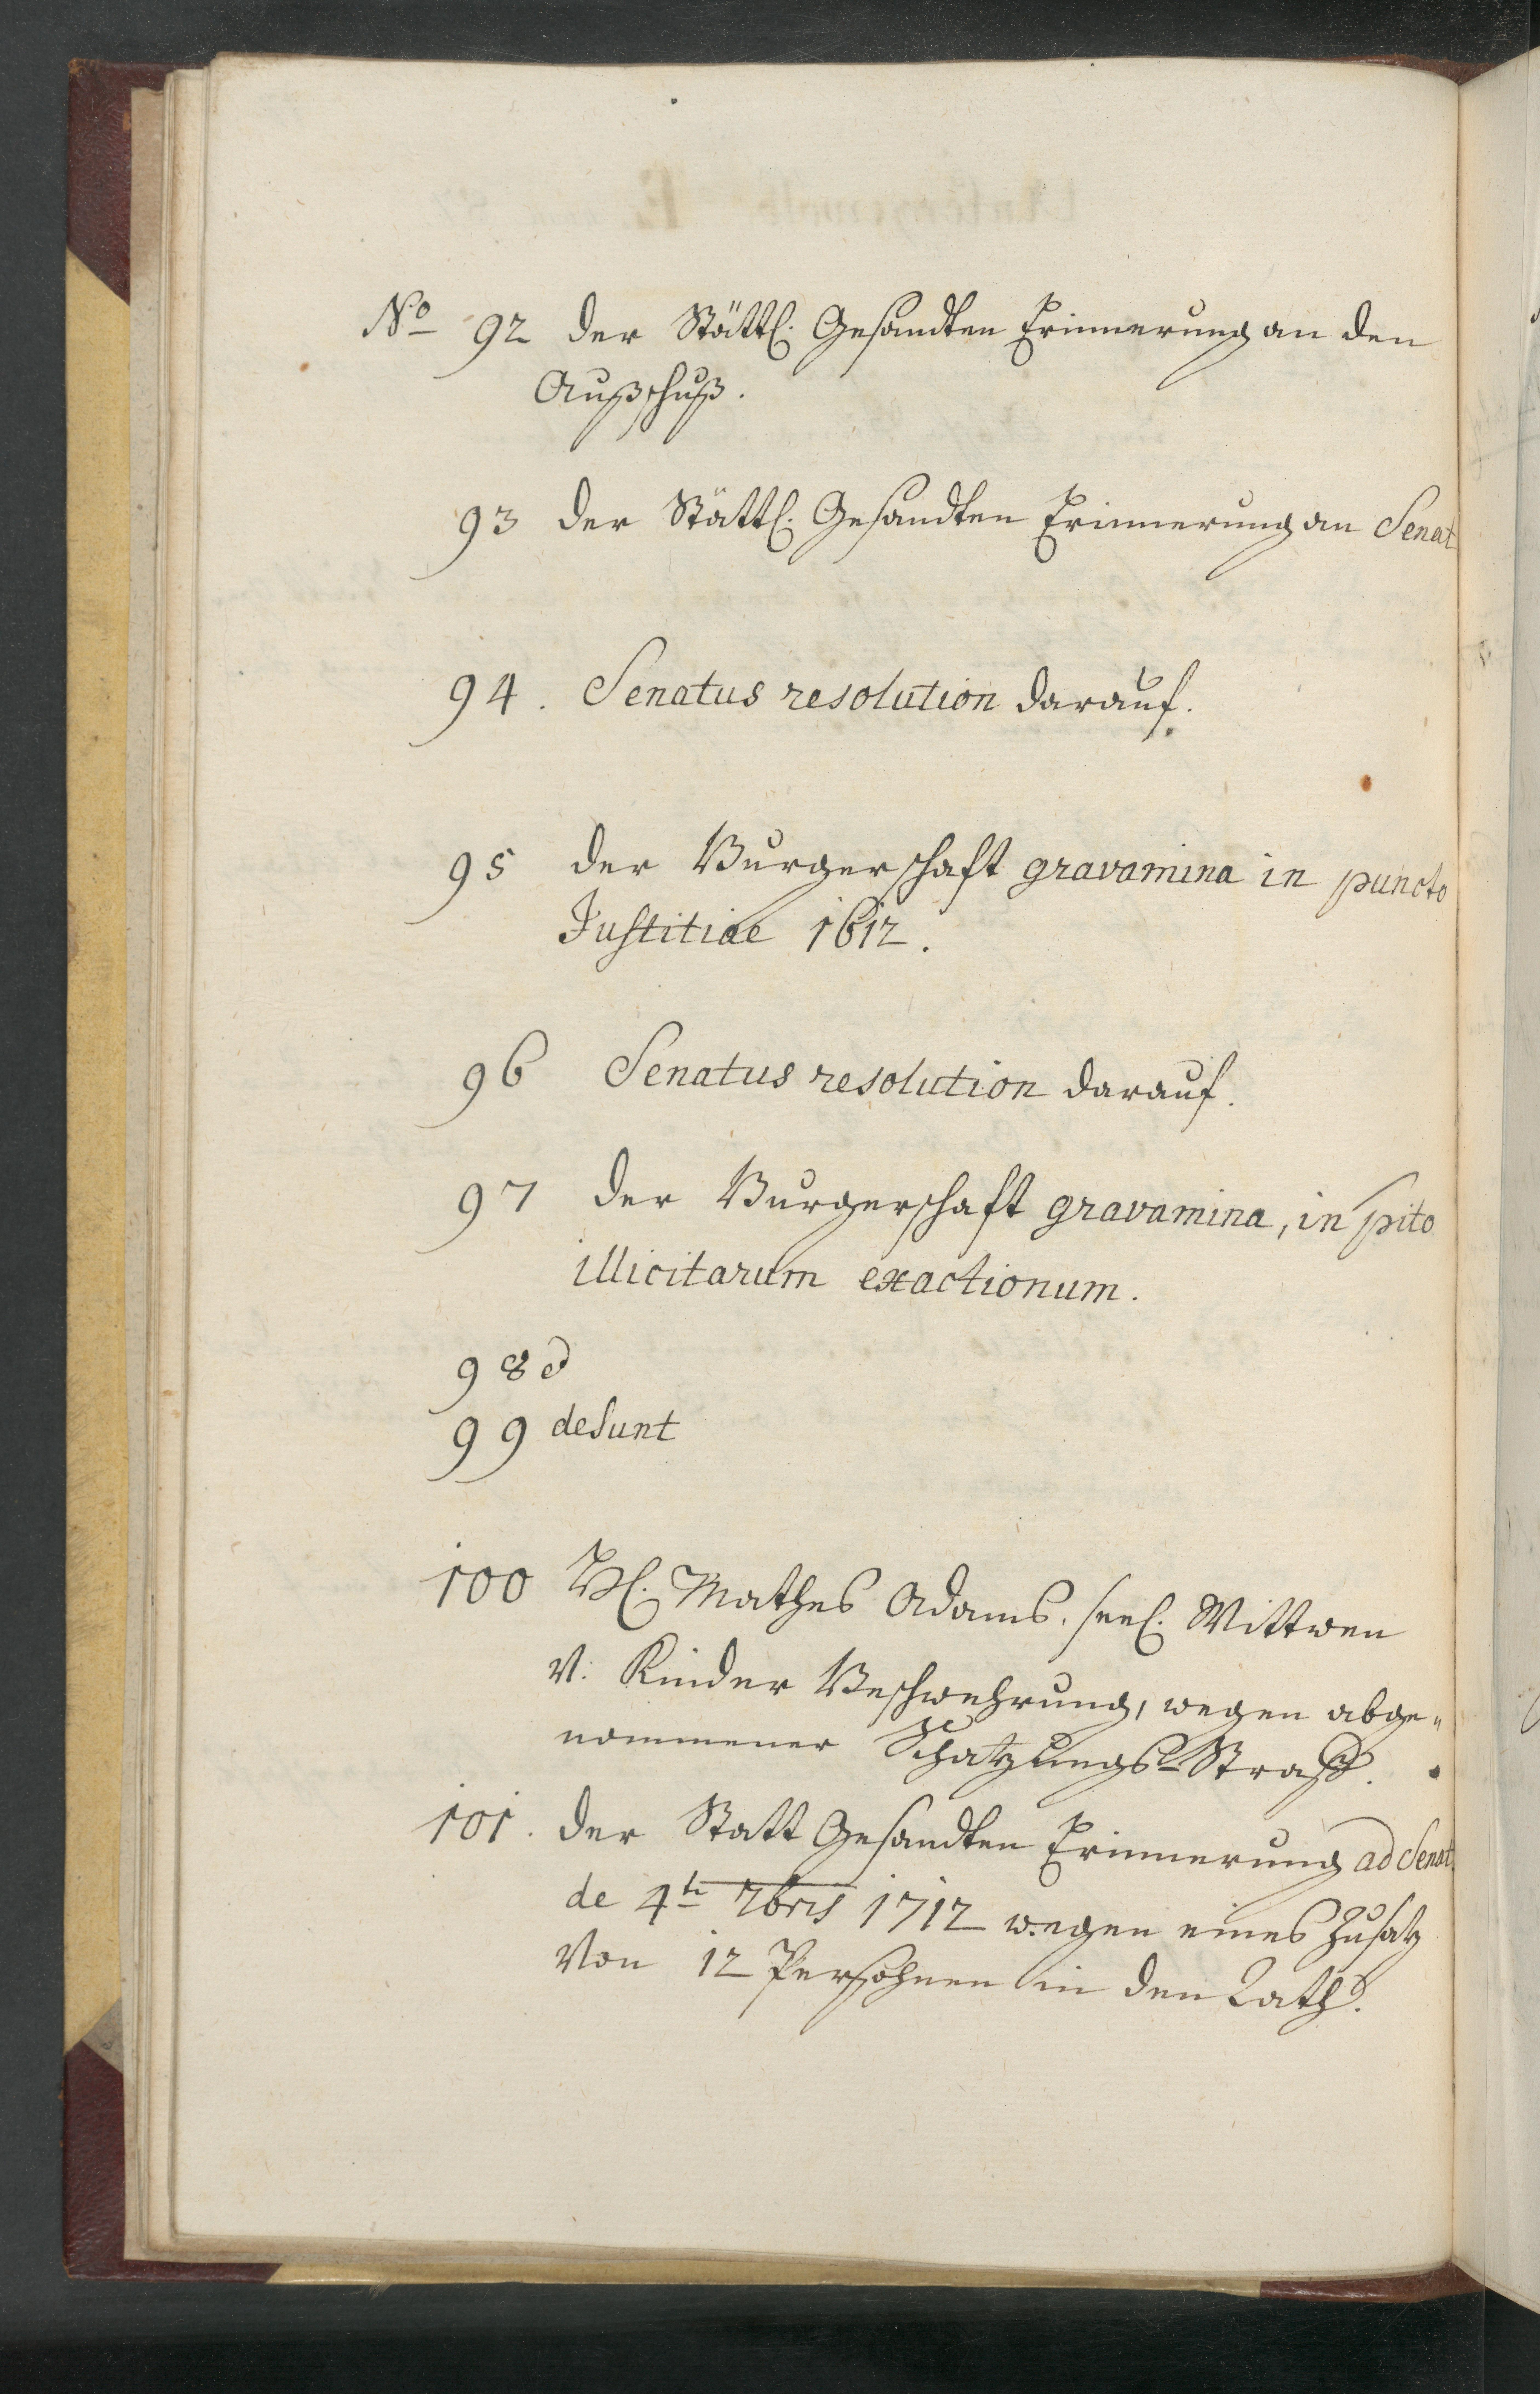 No 92 der Stättl. Gesandten Erinnerung an den
Außschuß.
93 der Stättl. Gesandten Erinnerung an Senat
94. Senatus resolution darauf.
95 der Burgerschafft gravamina in puncto
Justitiae 1612.
96 Senatus resolution darauf.
97 der Burgerschafft gravamina, in pcto
illicitarum exactionum.
98
99 desunt
100 H. Mathes Adams. seel. Wittwen
v. Kinder Beschwehrung, wegen abge„
nommener Schatzungs-Straff.
101. der Statt Gesandten Erinnerung ad Senat.
de 4t 7bris 1712 wegen eines Zusatz
von 12 Persohnen in den Rath.